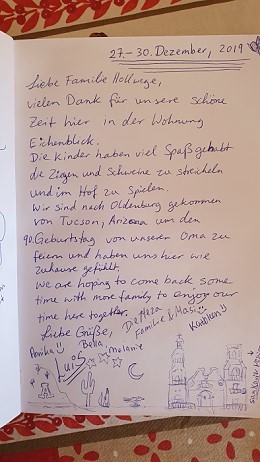 27.–30. Dezember, 2019
Liebe Familie Hollwege,
vielen Dank für unsere schöne
Zeit hier in der Wohnung
Eichenblick.
Die Kinder haben viel Spaß gehabt
die Ziegen und Schweine zu streicheln
und im Hof zu spielen.
Wir sind nach Oldenburg gekommen
von Tucson, Arizona um den
90. Geburtstag von unseren Oma zu
feiern und haben uns hier wie
zuhause gefühlt.
We are hoping to come back some
time with more family to enjoy our
time here together.
Liebe Grüße,
Familie
Luis
Bella,
Melanie